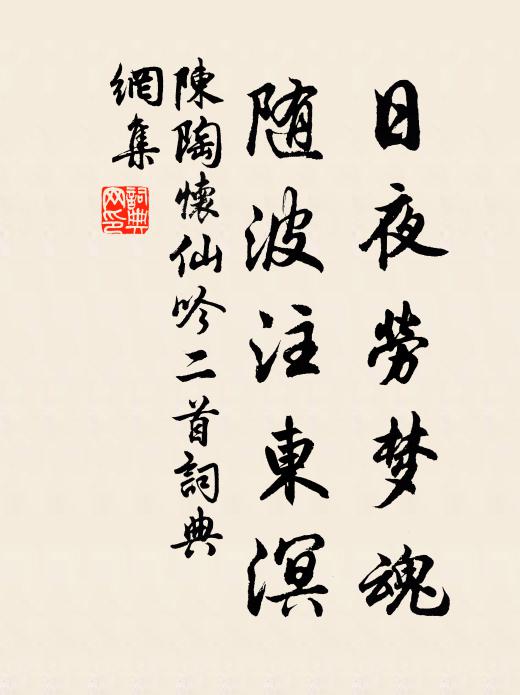 日夜勞梦魂
随波注東溟
陳陶懷仙吟二首詞典
網集
詞典网印